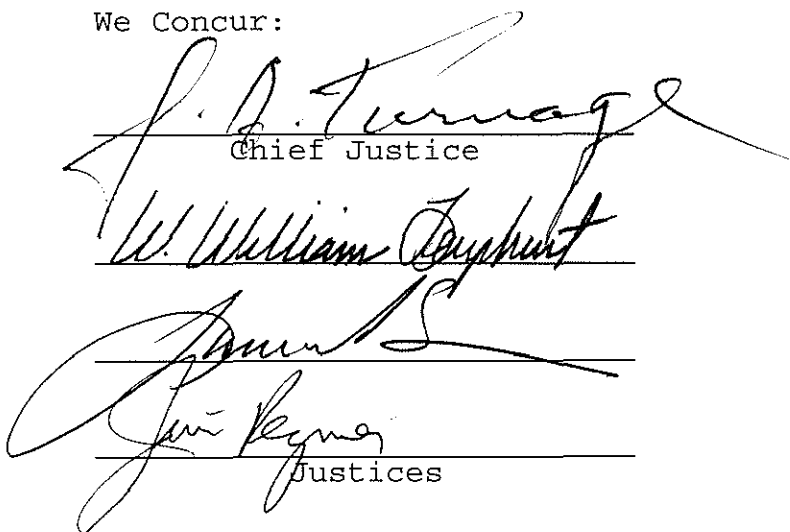 We Concur:
J. A. Turnage
Chief Justice
W. William
Jim Regnier
Justices